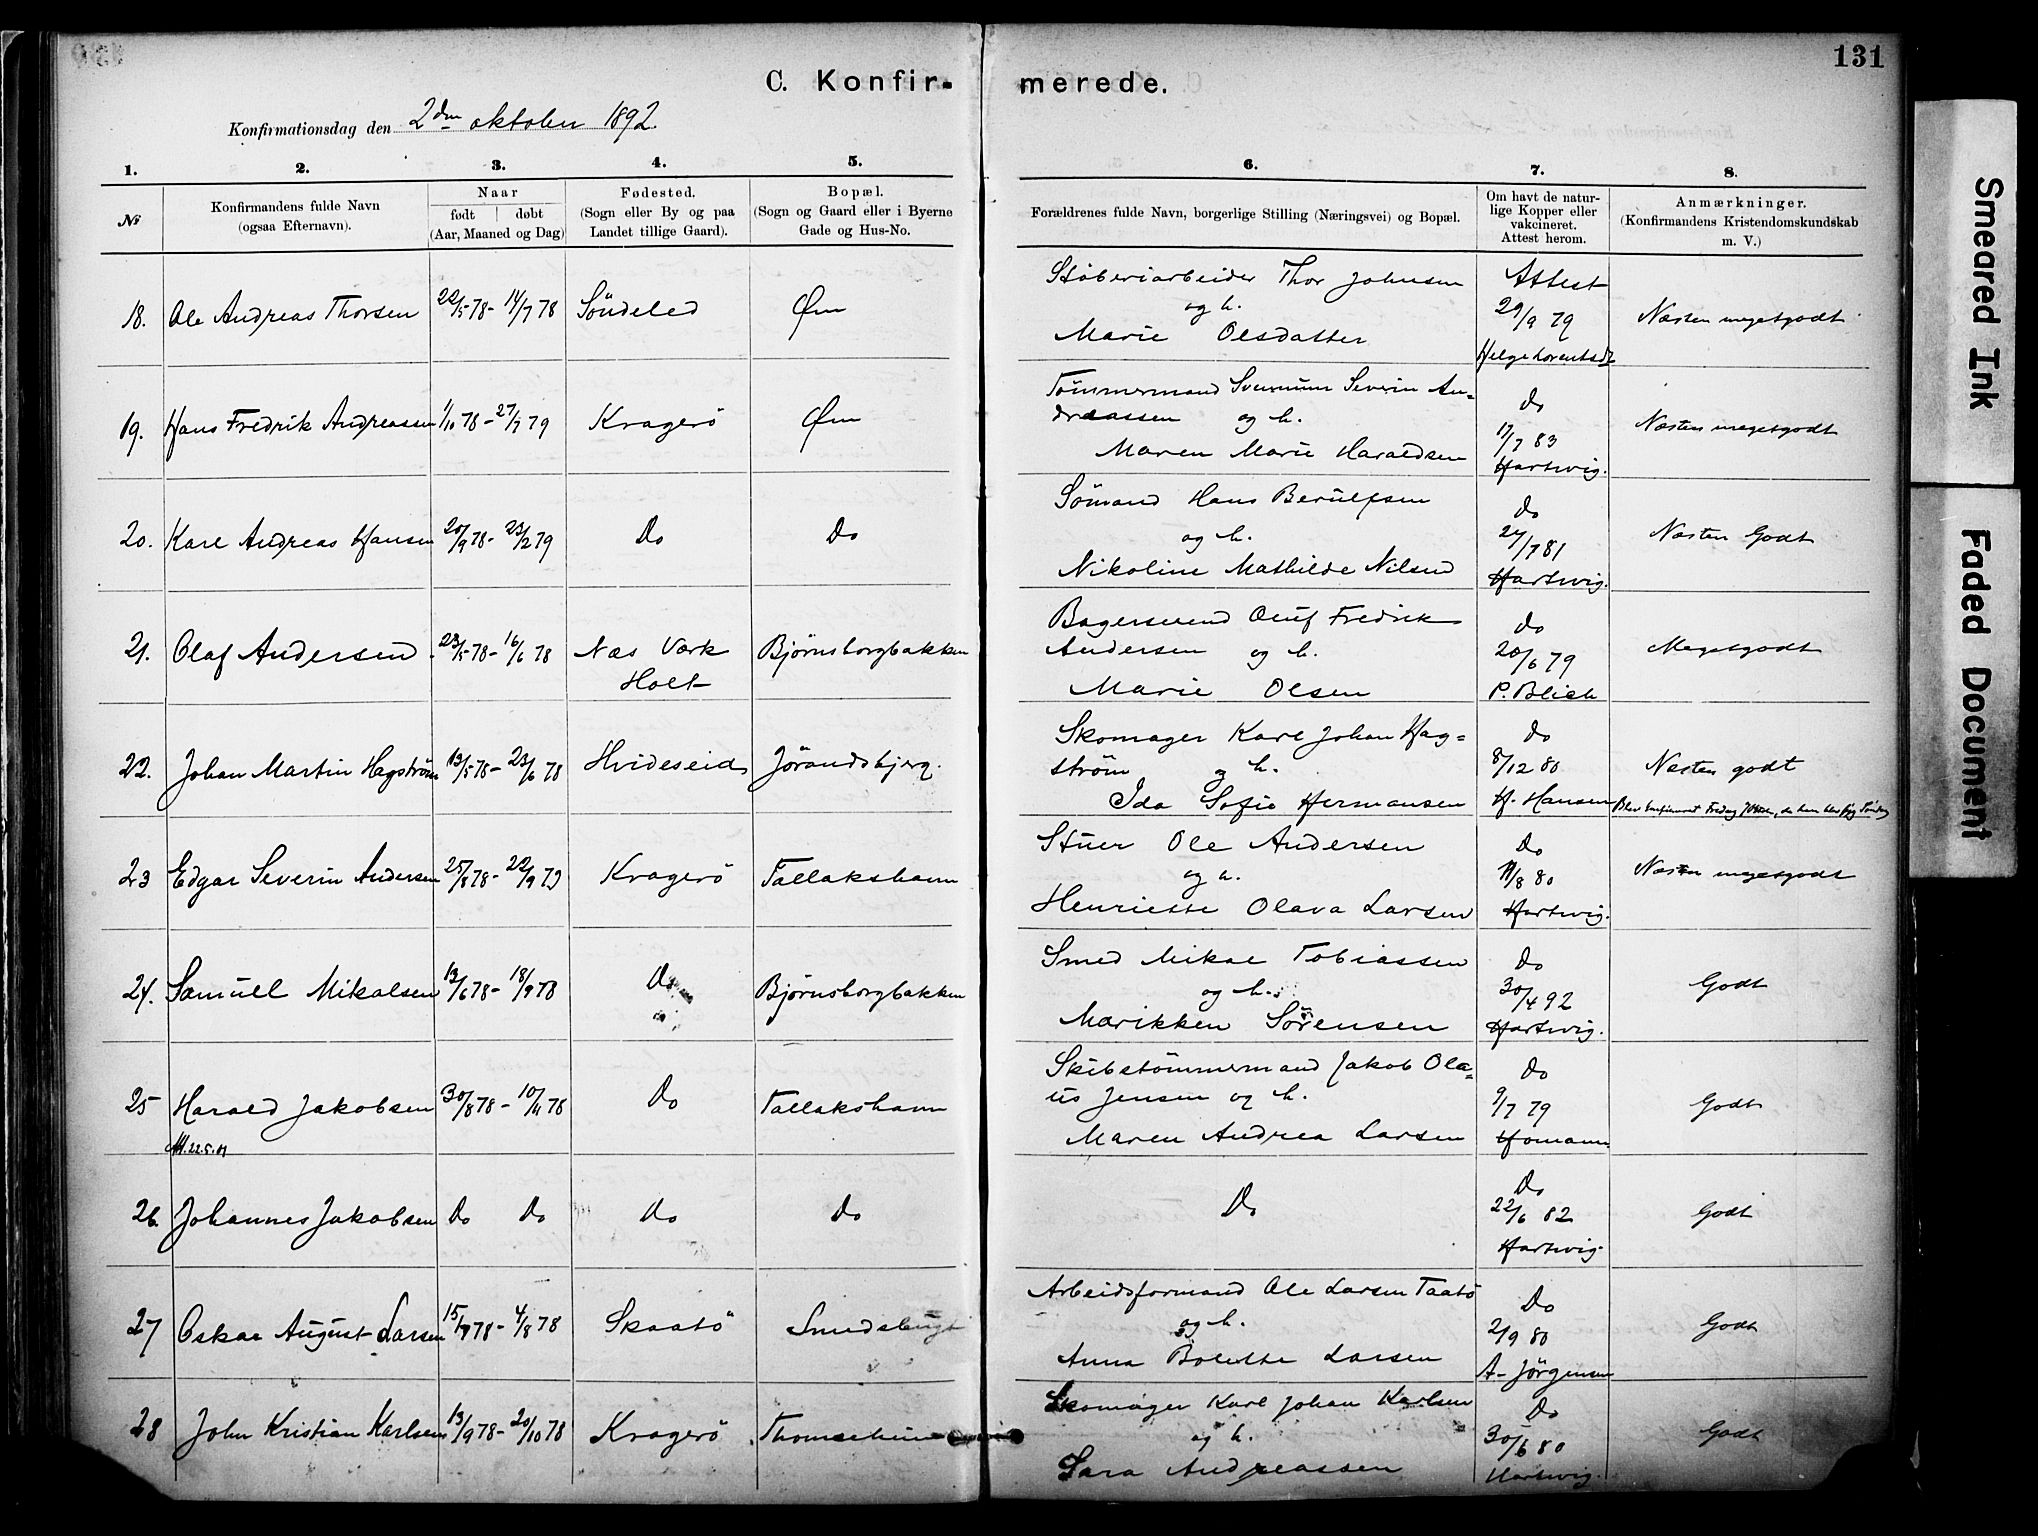 131
C. Konfir- merede.
Konfirmationsdag den 2den oktober 1892.
1. 2. 3. 4. 5. 6. 7. 8.
№
Konfirmandens fulde Navn
(ogsaa Efternavn).
Naar
født døbt
(Aar, Maaned og Dag)
Fødested.
(Sogn eller By og paa
Landet tillige Gaard).
Bopæl.
(Sogn og Gaard eller i Byerne
Gade og Hus-No.
Forældrenes fulde Navn, borgerlige Stilling (Næringsvei) og Bopæl.
Om havt de natur-
lige Kopper eller
vakcineret.
Attest herom.
Anmærkninger.
(Konfirmandens Kristendomskundskab
m. V.)
Støberiarbeider Thor Johnsen Attest
18. Ole Andreas Thorsen 22/5 78 - 14/7 78 Söndeled Øen og h. 29/9 79 Næsten megetgodt
Marie Olsdatter Helge Lorentsdt
Tömmermand Severin An=
19. Hans Fredrik Andreassen 1/10 78 - 27/7 79 Kragerö Øen dreassen og h. do Næsten megetgodt
17/7 83
Maren Marie Haraldsen Hartwig.
Sömand Hans Berulfsen do
20. Karl Andreas Hansen 20/9 78 - 23/2 79 Do Do og h. 24/7 81 Næsten Godt
Nikoline Mathilde Nilsen Hartwig.
Bagersvend Oluf Fredrik do
21. Olaf Andersen 23/5 78 - 16/6 78 Næs Værk Bjørnsborgbakken Andersen og h. 20/6 79 Megetgodt
Holt Marie Olsen P. Blich
Skomager Karl Johan Hag= do
22. Johan Martin Hagström 13/5 78 - 23/6 78 Hvideseid Jörandsbjerg. ström og h. 8/12 80 Næsten godt
Ida Sofie Hermansen H. Hansen Blev konfirmeret Fredag 7 Oktober, da han blev syg Söndag
Stuer Ole Andersen Do
23 Edgar Severin Andersen 25/8 78 - 22/9 79 Kragerö Tallakshavn og h. 11/8 80 Næsten megetgodt
Henriette Olava Larsen Hartwig.
Smed Mikal Tobiassen Do
24. Samuel Mikalsen 13/6 78 - 18/9 78 Do Bjørnsborgbakken og h. 30/4 92 Godt
Marikken Sörensen Hartwig.
Skibstömmermand Jakob Ola= Do
25 Harald Jakobsen 30/8 78 - 10/11 78 Do Tallakshavn us Jensen og h. 9/7 79 Godt
Att. 22.5.01 Maren Andrea Larsen Homann
26. Johannes Jakobsen Do Do Do Do Do Do
22/6 82 Godt
Hartwig.
Arbeidsformand Ole Larsen Taatö Do
27 Oskar August Larsen 15/7 78 - 4/8 78 Skaatö Smedsbugt og h. 2/9 80 Godt
Anna Bolette Larsen A. Jörgensen
Skomager Karl Johan Karlsen Do
28 John Kristian Karlsen 13/9 78 - 20/10 78 Kragerö og h. 30/6 80 Godt
Sara Andreassen Hartwig.
Smeared Ink
Faded Document